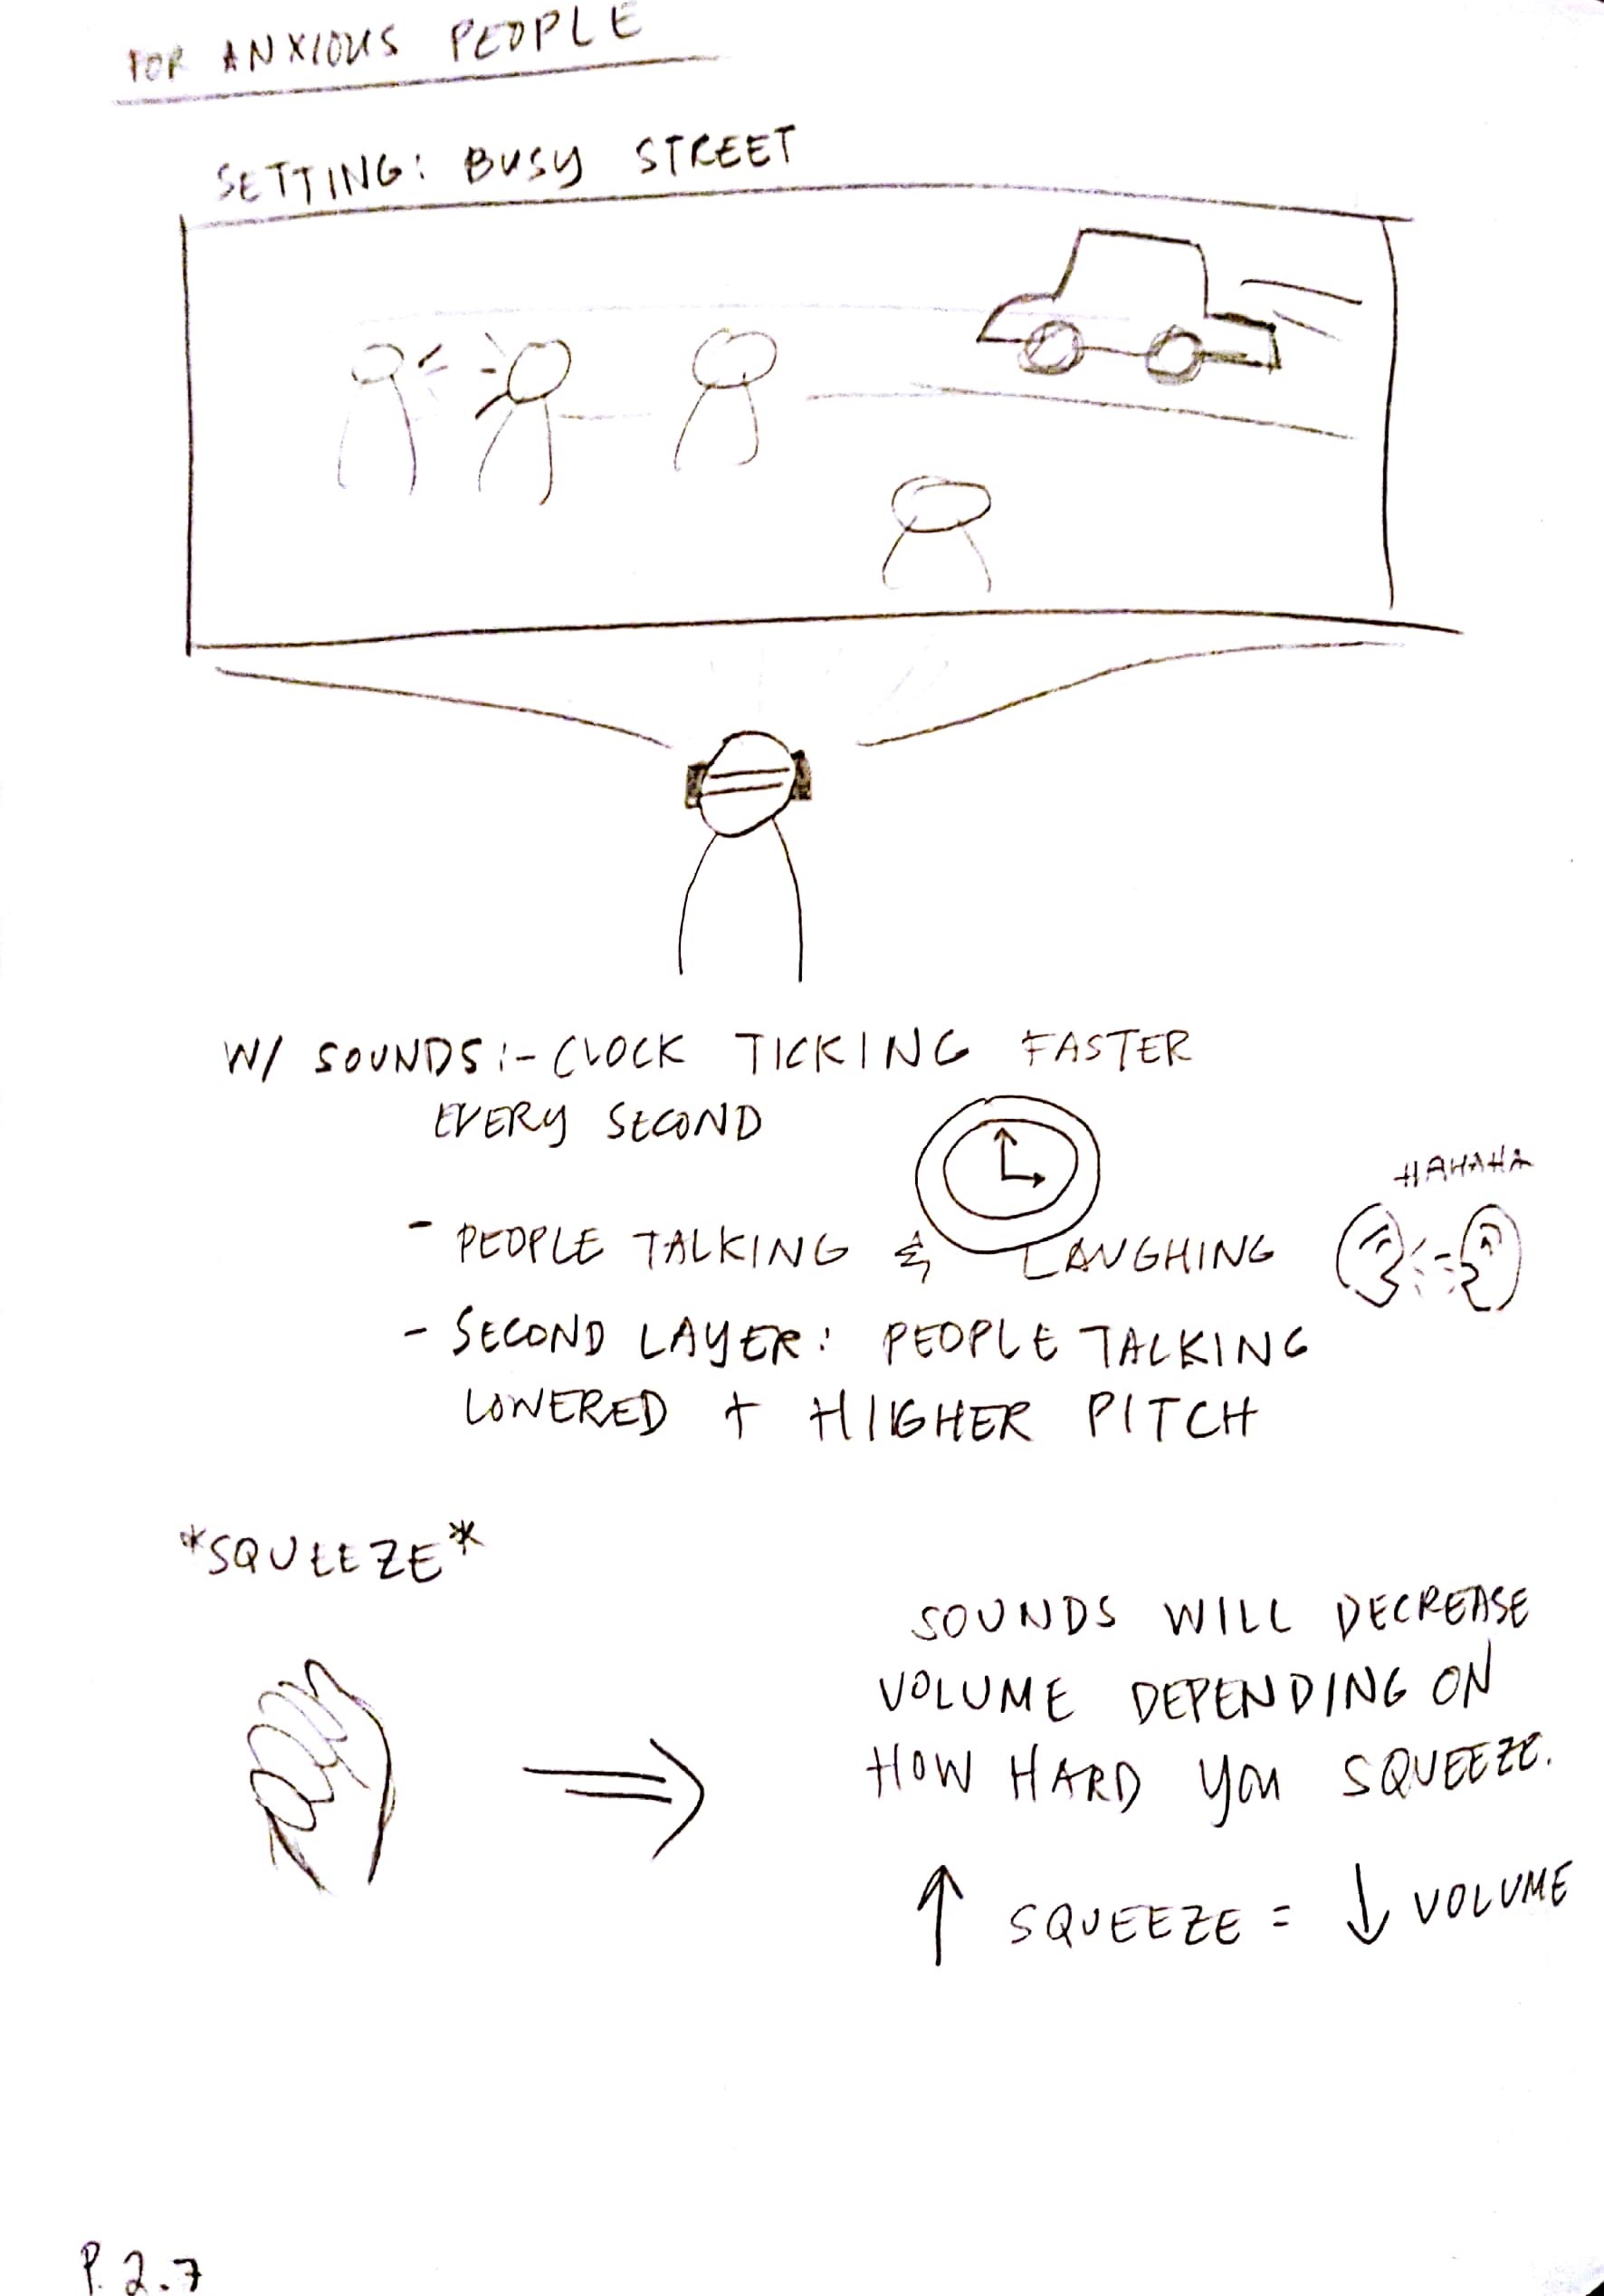 FOR ANXIOUS PEOPLE
SETTING: BUSY STREET
W/ SOUNDS:- CLOCK TICKING FASTER
EVERY SECOND
HAHAHA
- PEOPLE TALKING & LAUGHING
- SECOND LAYER: PEOPLE TALKING
LOWERED + HIGHER PITCH
*SQUEEZE*
SOUNDS WILL DECREASE
VOLUME DEPENDING ON
HOW HARD YOU SQUEEZE.
↑ SQUEEZE = ↓ VOLUME
P. 2.7